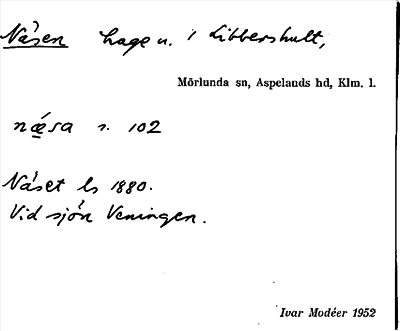 Näsen hage n. i Libbershult,
Mörlunda sn, Aspelands hd, Klm. l.
næsa s. 102
Näset ls 1880.
Vid sjön Veningen.
Ivar Modéer 1952